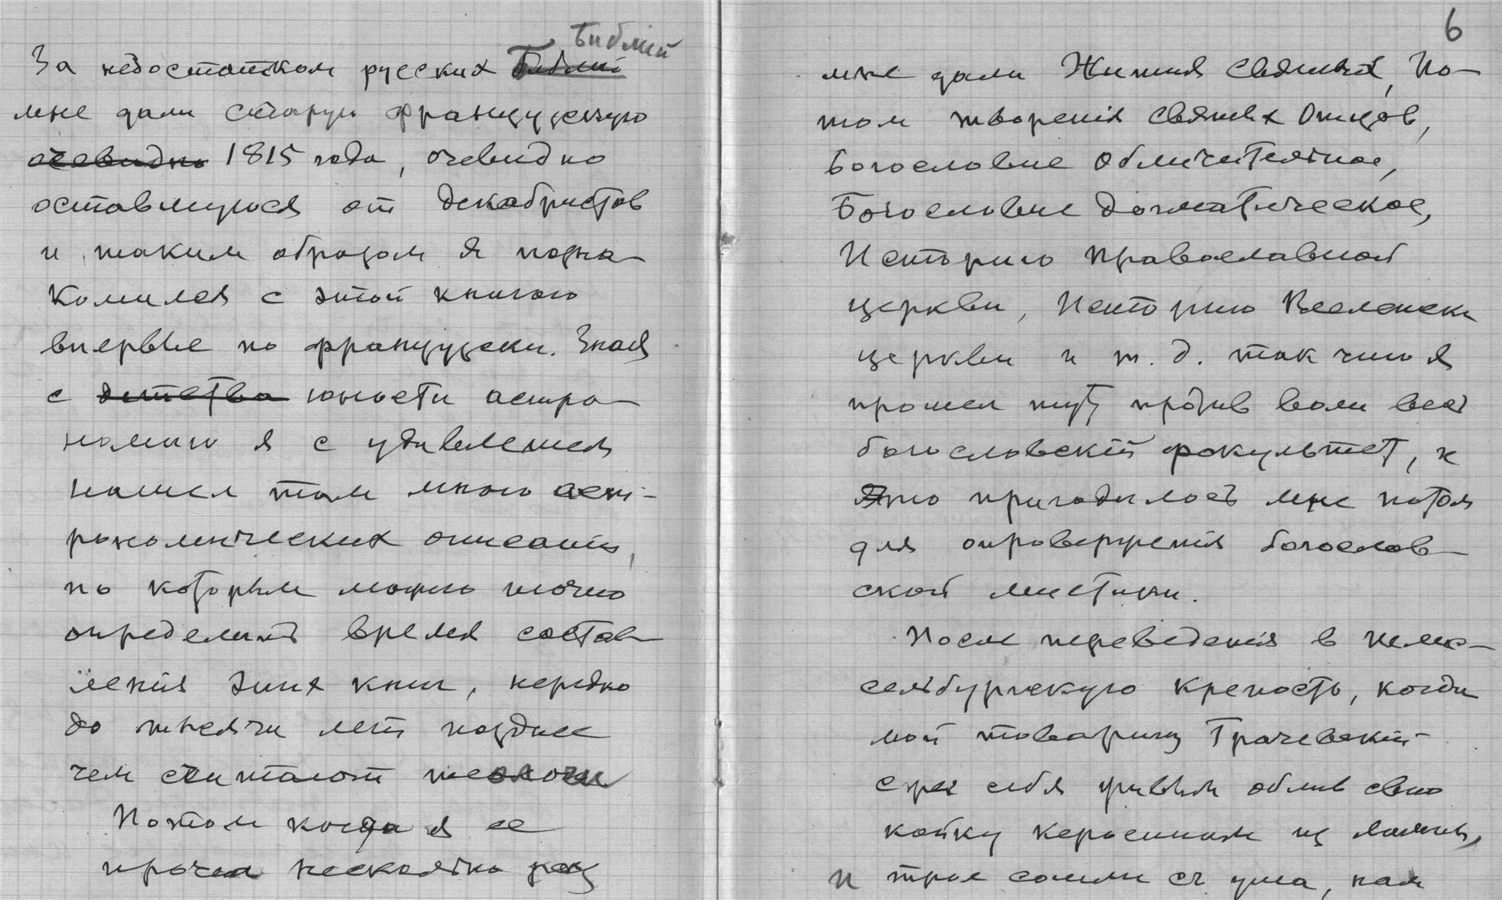 Библий
За недостатком русских Библий
мне дали старую французскую
очевидно 1815 года, очевидно
оставшуюся от декабристов
и таким образом я позна-
комился с этой книгою
впервые по французски. Зная
с детства юности астро-
номию я с удивлением
нашел там много аст-
рономических описаний,
по которым можно точно
определить время состав-
ления этих книг, нередко
до тысячи лет позднее
чем считают теологи
Потом когда я ее
прочел несколько раз
6
мне дали Жития святых, По-
том творения святых Отцов,
Богословие Обличительное,
Богословие Догматическое,
Историю Православной
церкви, Историю Вселенск
церкви и т. д. так что я
прошел тут против воли весь
богословский факультет, и
это пригодилось мне потом
для опровержения богослов-
ской мистики.
После переведения в Шлис-
сельбургскую крепость, когда
мой товарищ Грачевский
сжег себя живым облив свою
койку керосином из лампы,
и трое сошли съ ума, нам